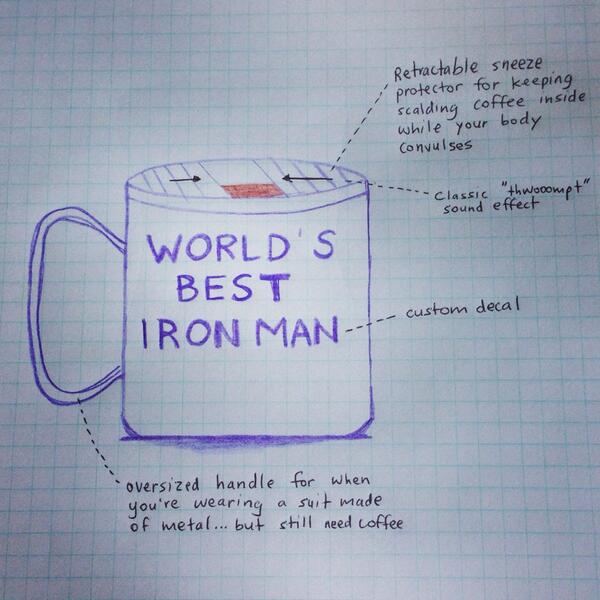 Retractable sneeze
protector for keeping
scalding coffee inside
while your body
convulses
classic "thwooompt"
sound effect
WORLD'S
BEST
IRON MAN
custom decal
oversized handle for when
you're wearing a suit made
of metal... but still need coffee